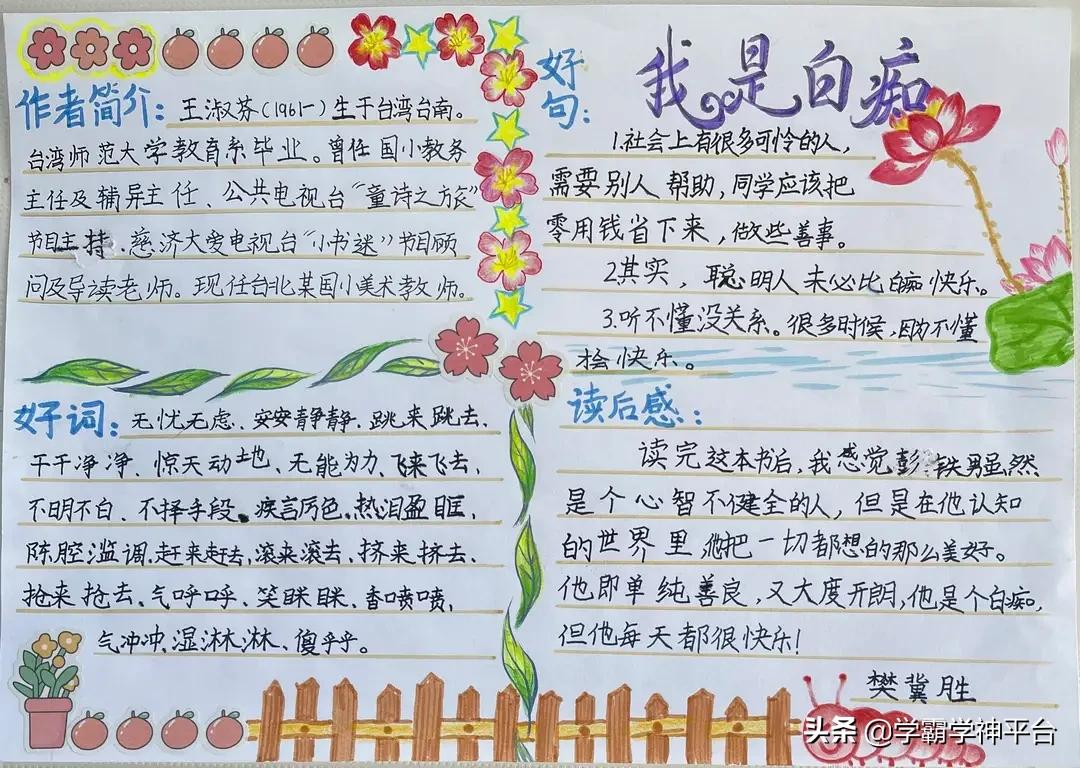 我是白痴
作者简介：王淑芬（1961—）生于台湾台南。
台湾师范大学教育系毕业。曾任国小教务
主任及辅导主任、公共电视台“童诗之旅”
节目主持、慈济大爱电视台“小书迷”节目顾
问及导读老师。现任台北某国小美术教师。
好句：
1.社会上有很多可怜的人，
需要别人帮助，同学应该把
零用钱省下来，做些善事。
2.其实，聪明人未必比白痴快乐。
3.听不懂没关系。很多时候，因为不懂
才会快乐。
好词：无忧无虑、安安静静、跳来跳去、
干干净净、惊天动地、无能为力、飞来飞去、
不明不白、不择手段、疾言厉色、热泪盈眶、
陈腔滥调、赶来赶去、滚来滚去、挤来挤去、
抢来抢去、气呼呼、笑眯眯、香喷喷、
气冲冲、湿淋淋、傻乎乎。
读后感：
读完这本书后，我感觉彭铁男虽然
是个心智不健全的人，但是在他认知
的世界里他把一切都想的那么美好。
他即单纯善良，又大度开朗，他是个白痴，
但他每天都很快乐！
樊冀胜
头条 @学霸学神平台